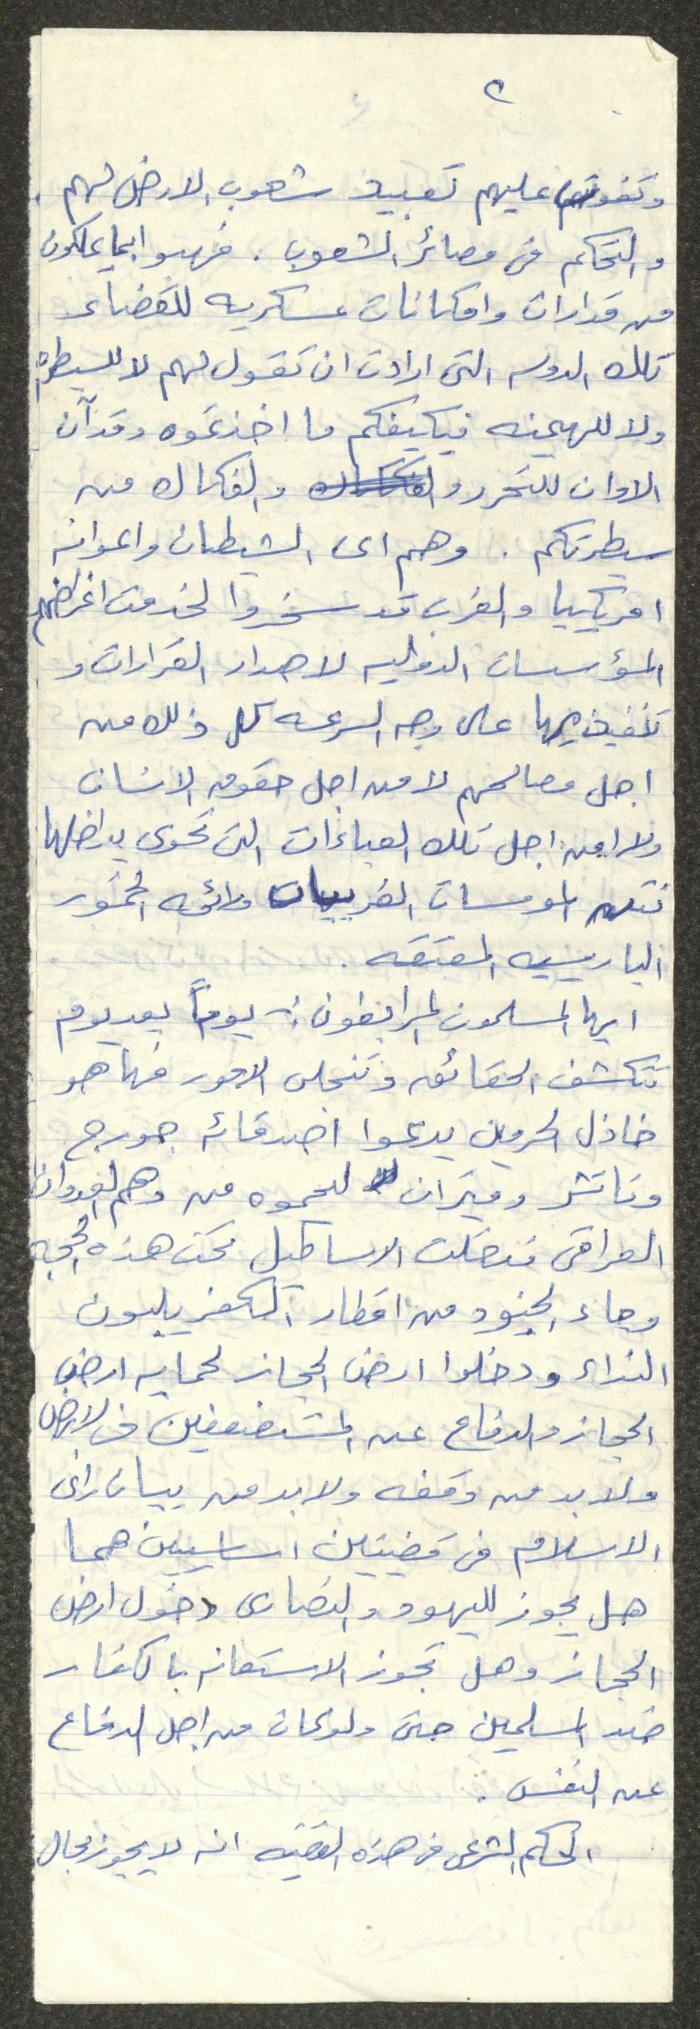 ٢
وتفوت عليهم تعبيد شعوب الارض لهم .
والتحكم في مصائر الشعوب . فهبوا بما يملكون
من قدارات وامكانات عسكريه للقضاء
تلك الدوله التى ارادت ان تقول لهم لا للسيطره
ولا للهيمنه فيكيفكم ما اخذتموه وقد آن
الاوان للتحرر و والفكاك من
سيطرتكم . وهم اى الشيطان واعوانه
امريكيا والغرب قد سخروا لخدمت اغراضهم
المؤسسات الدوليه لاصدار القرارات و
تنفيذيها على وجه السرعه كل ذلك من
اجل مصالحهم لا من اجل حقوق الانسان
ولا من اجل تلك العباءات التى تحوى بداخلها
نتن المومسات الغربيات ورائحه الخمور
الباريسيه المعتقه .
ايها المسلمون المرابطون :- يوماً بعد يوم
تنكشف الحقائق وتنجلى الامور فها هو
خاذل الحرمين يدعوا اصدقائه جورج
وتاتشر وميتران لحموه من وهم العدوان
العراقى فتحركت الاساطيل تحت هذه الحجه
وجاء الجنود من اقطار الكفر يلبون
النداء ودخلوا ارض الحجاز لحمايه ارض
الحجاز والدفاع عن المستضعفين في الارض
ولا بد من وقفه ولا بد من بيان رائى
الاسلام في قضيتين اساسيين هما
هل يجوز لليهود والنصارى دخول ارض
الحجاز وهل تجوز الاستعانه بالكفار
ضد المسلمين حتى ولو كان من اجل الدفاع
عن النفس .
الحكم الشرعى في هذه القضيه انه لا يجوز بحال